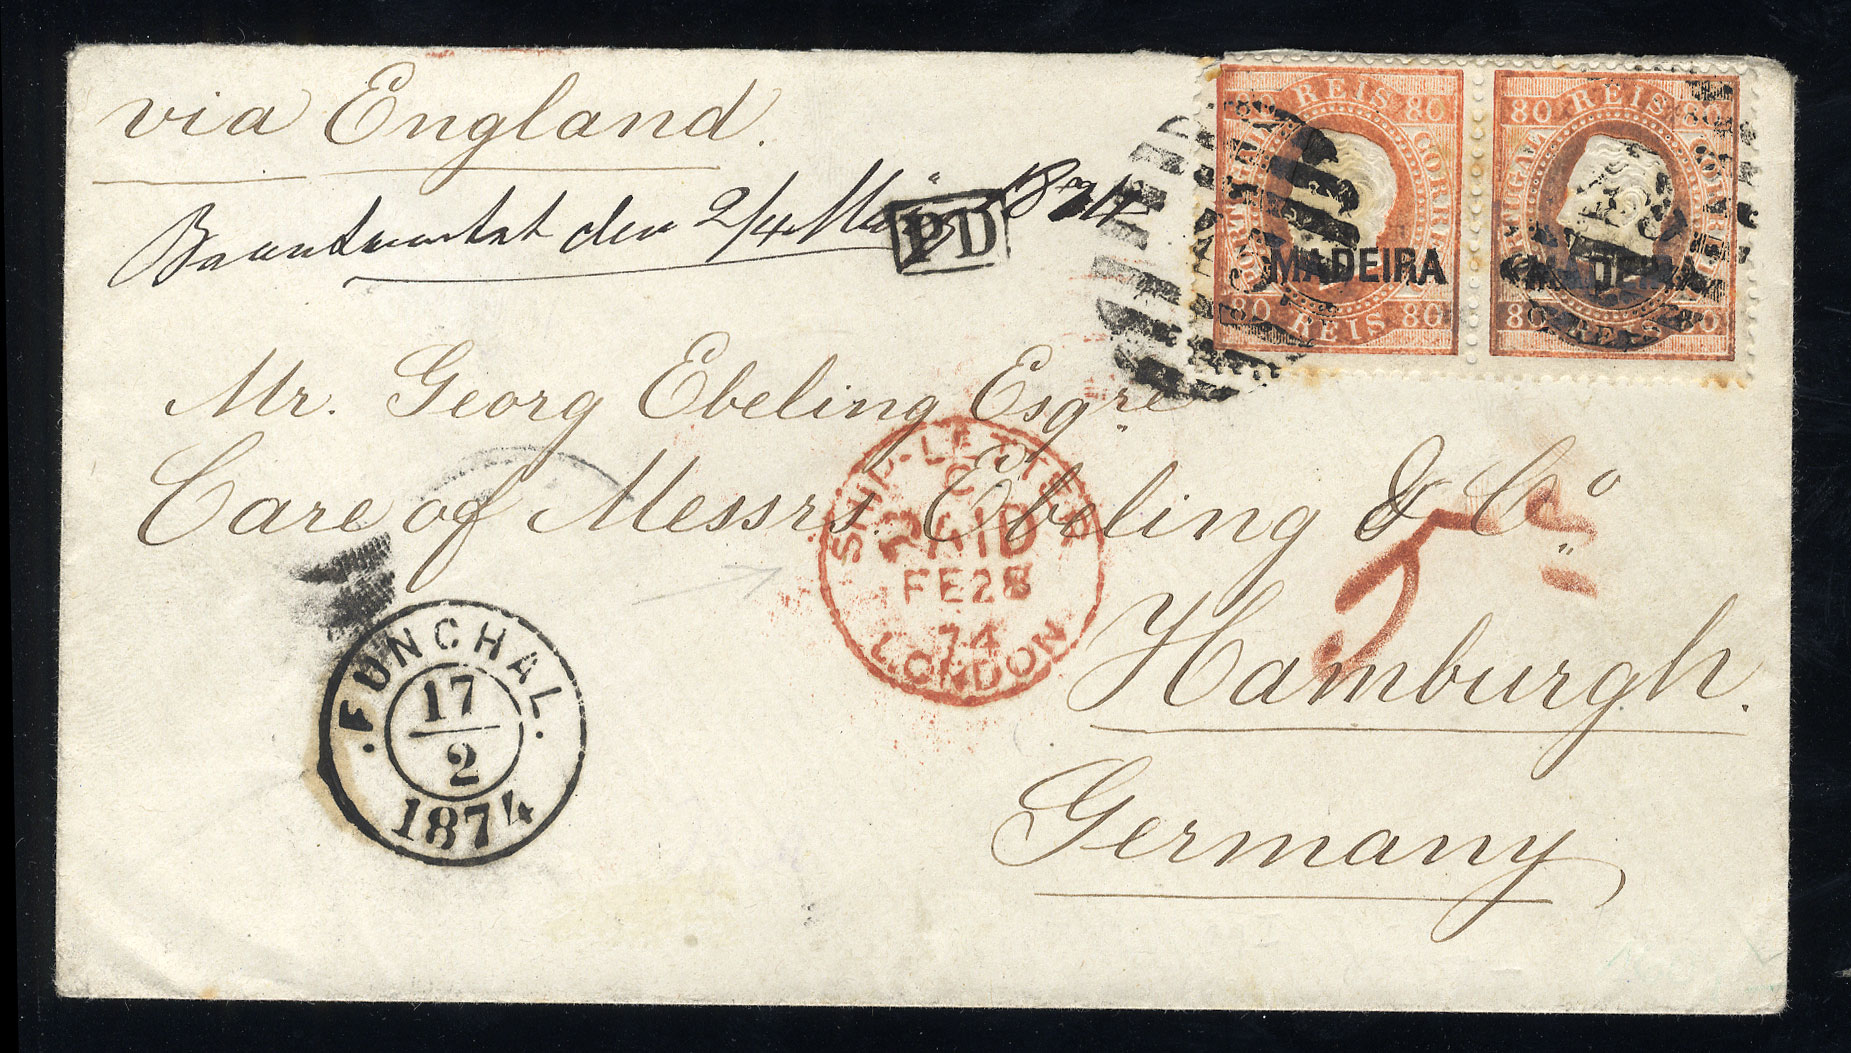 via England.
Beantwortet den 2/4 März 1874
PD
80 REIS 80
PORTUGAL CORREIO
MADEIRA
80 REIS 80
80 REIS 80
PORTUGAL CORREIO
MADEIRA
80 REIS 80
Mr. Georg Ebeling Esqre
Care of Messrs. Ebeling & Co
Hamburgh.
Germany
SHIP-LETTER
C
PAID
FE 28
74
LONDON
FUNCHAL
17
2
1874